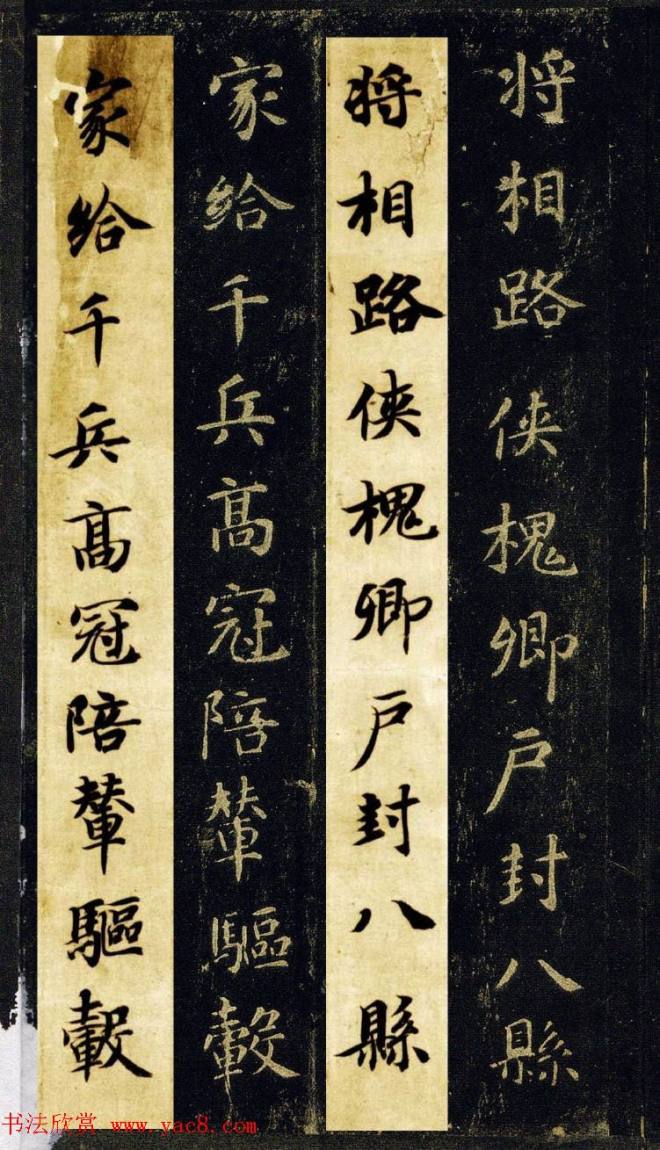 将相路侠槐卿户封八縣
将相路侠槐卿户封八縣
家给千兵髙冠陪輦驅轂
家给千兵髙冠陪輦驅轂
书法欣赏 www.yac8.com